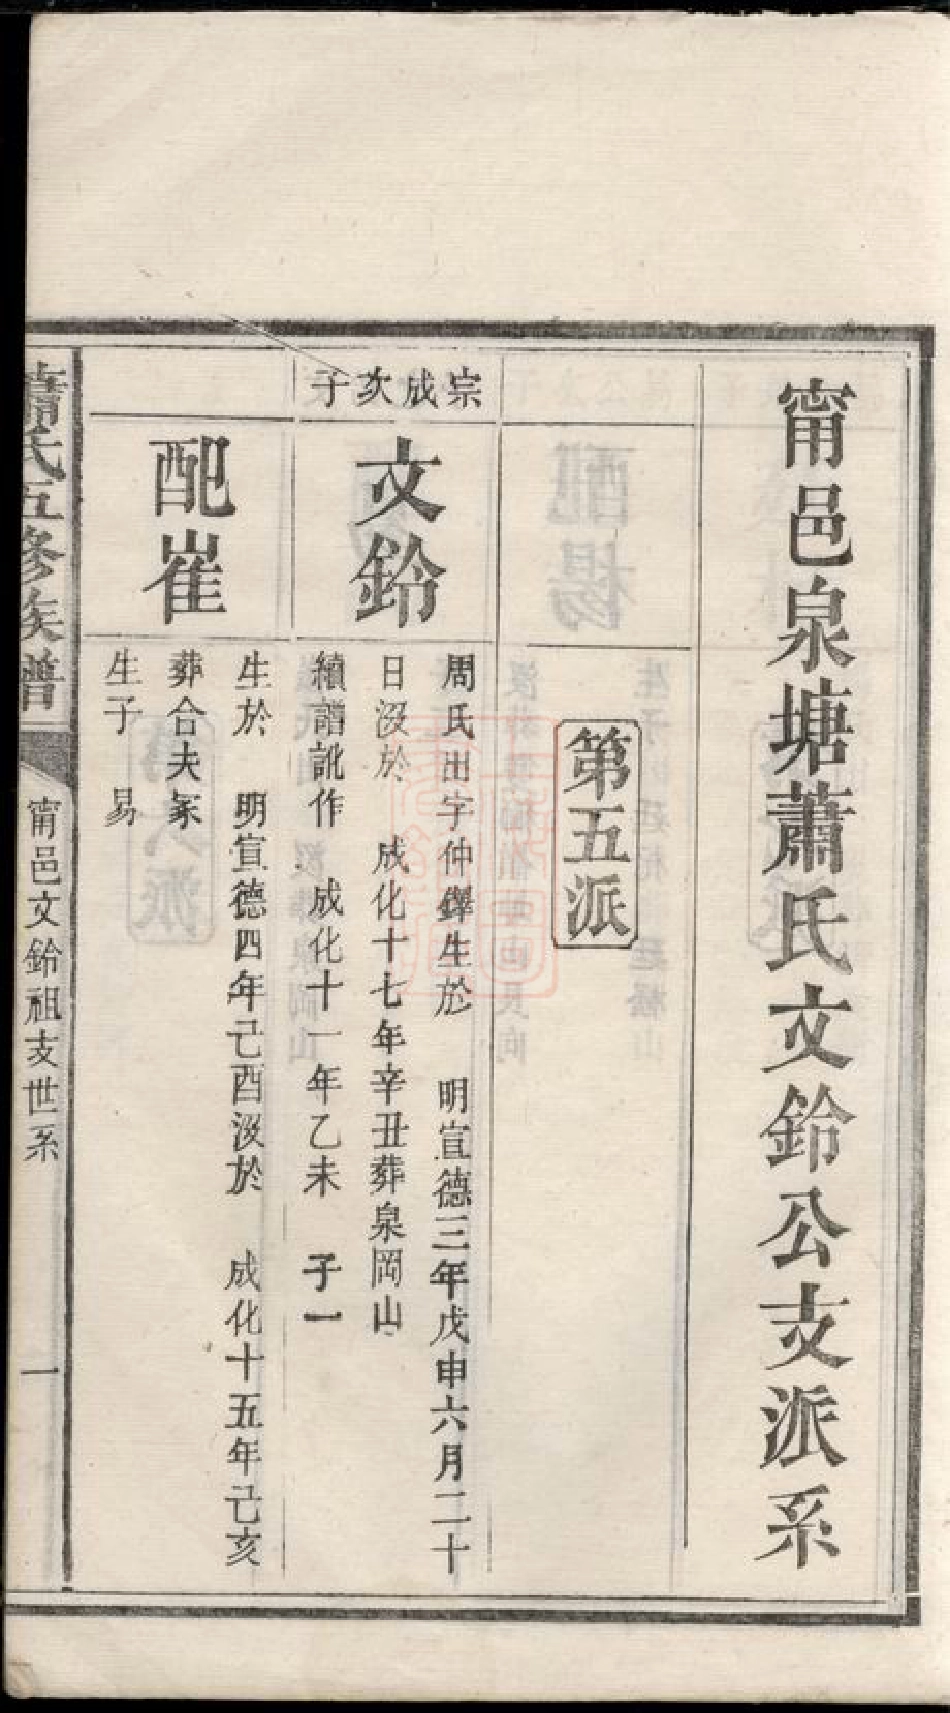 甯邑泉塘蕭氏文鈴公支派系
第五派
宗成次子
文鈴
周氏出字仲鐸生於 明宣德三年戊申六月二十
日沒於 成化十七年辛丑葬泉岡山
續譜訛作 成化十一年乙未 子一
配崔
生於 明宣德四年己酉沒於 成化十五年己亥
葬合夫冢
生子 易
蕭氏五修族譜
甯邑文鈴祖支世系
一